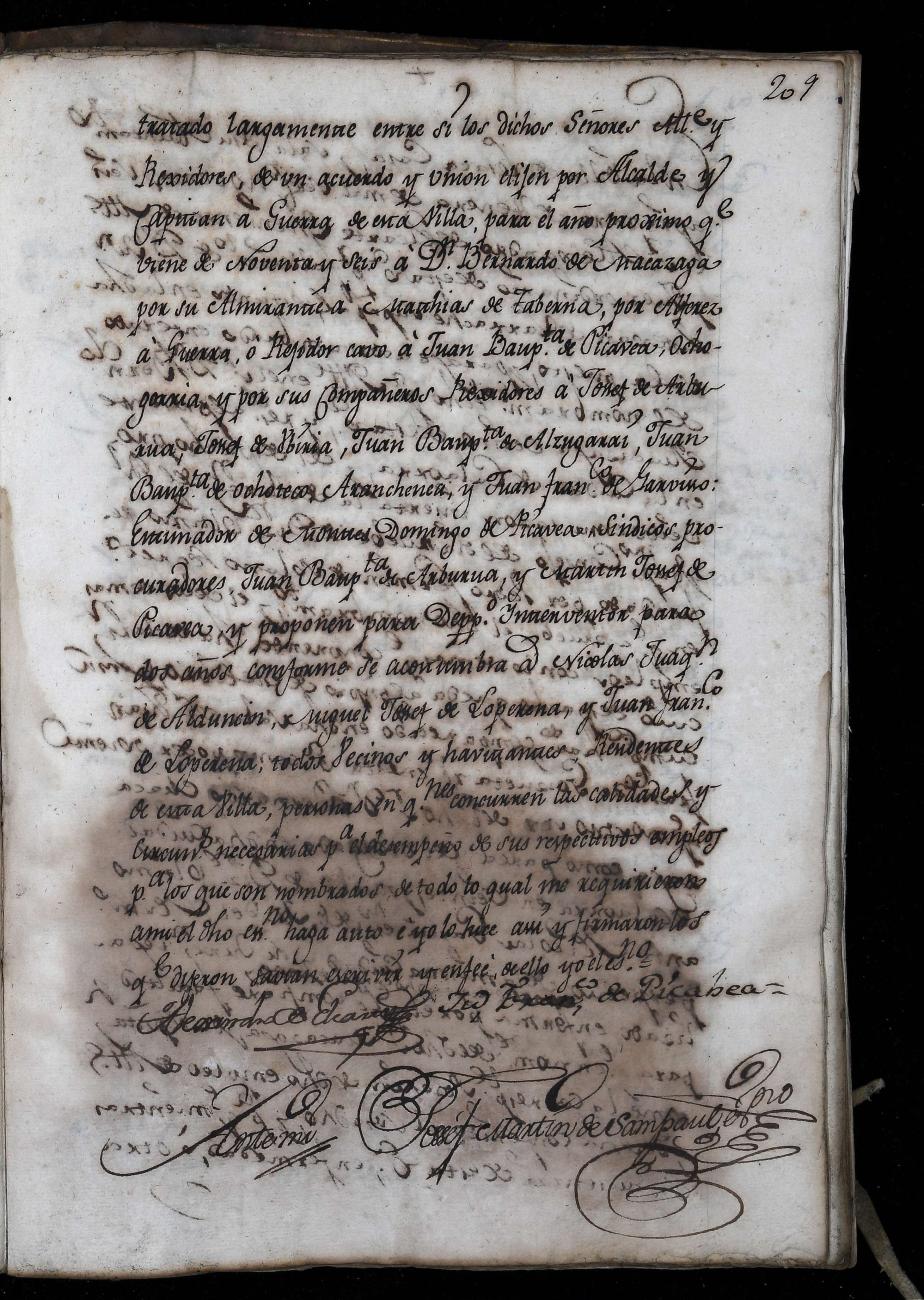 209
tratado largamente entre si los dichos Señores All.e y
Rexidores, de vn acuerdo y vnion elijen por Alcalde y
Capitan à Guerra de esta Villa, para el año proximo q.e
viene de Noventa y seis à D.n Bernardo de Macazaga
por su Almirante a Matthias de Taberna, por Alferez
à Guerra, o Rejidor cavo à Juan Baup.ta de Picavea, Ocho-
gorria, y por sus Compañeros Rexidores à Josef de Arbu-
rua, Josef de Yiria, Juan Baup.ta de Alzugarai, Juan
Baup.ta de ochoteco, Aranchenea, y Juan fran.co de Garvisso:
Encinador de Montes Domingo de Picavea Sindicos pro-
curadores, Juan Baup.ta de Arburua, y Martin Josef de
Picavea, y proponen para Depp.o Interventor para
dos años conforme se acostumbra à Nicolas Juaq.n
de Alduncin, Miguel Josef de Loperena, y Juan fran.co
de Loperena; todos Vecinos y havitantes, Residentes
de esta Villa, personas en q.nes concurren las calidades y
Circun.s necesarias p.a el desempeño de sus respectivos empleos
p.a los que son nombrados de todo lo qual me requirieron
ami el dho en.no haga auto è yo lo hice assi y firmaron los
q.e dijeron savian escrivir y enfeè, de ello yo el es.no=
de Picabea=
Ante mi Josef Martin de Sampaul